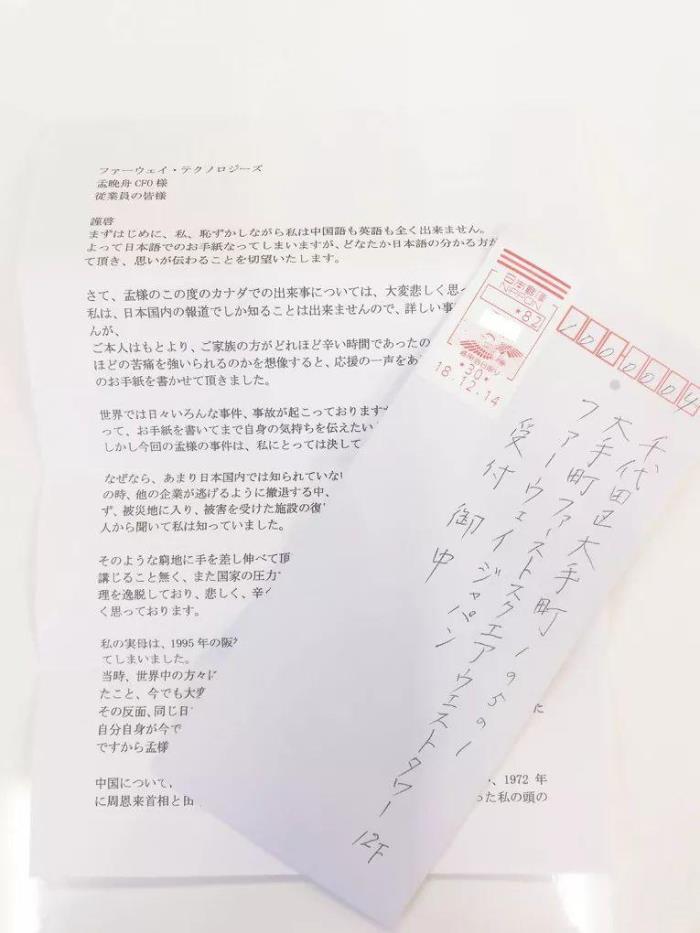 ファーウェイ・テクノロジーズ
孟晩舟 CFO 様
従業員の皆様
謹啓
まずはじめに、私、恥ずかしながら私は中国語も英語も全く出来ません。
よって日本語でのお手紙なってしまいますが、どなたか日本語の分かる方が
て頂き、思いが伝わることを切望いたします。
さて、孟様のこの度のカナダでの出来事については、大変悲しく思っ
私は、日本国内の報道でしか知ることは出来ませんので、詳しい事
んが、
ご本人はもとより、ご家族の方がどれほど辛い時間であったの
ほどの苦痛を強いられるのかを想像すると、応援の一声をあ
のお手紙を書かせて頂きました。
世界では日々いろんな事件、事故が起こっております
って、お手紙を書いてまで自身の気持ちを伝えたい
しかし今回の孟様の事件は、私にとっては決して
なぜなら、あまり日本国内では知られていない
の時、他の企業が逃げるように撤退する中、
ず、被災地に入り、被害を受けた施設の復
人から聞いて私は知っていました。
そのような窮地に手を差し伸べて頂
講じること無く、また国家の圧力
理を逸脱しており、悲しく、辛
く思っております。
私の実母は、1995 年の阪
てしまいました。
当時、世界中の方々に
たこと、今でも大変
その反面、同じ日
自分自身が今で
ですから孟様
中国について、
、1972 年
に周恩来首相と田
った私の頭の
日本郵便
NIPPON
*82
*30*
18.12.14
1000004
千代田区大手町
大手町ファーストスクエアウエストタワー 12F
ファーウェイジャパン
受付 御中